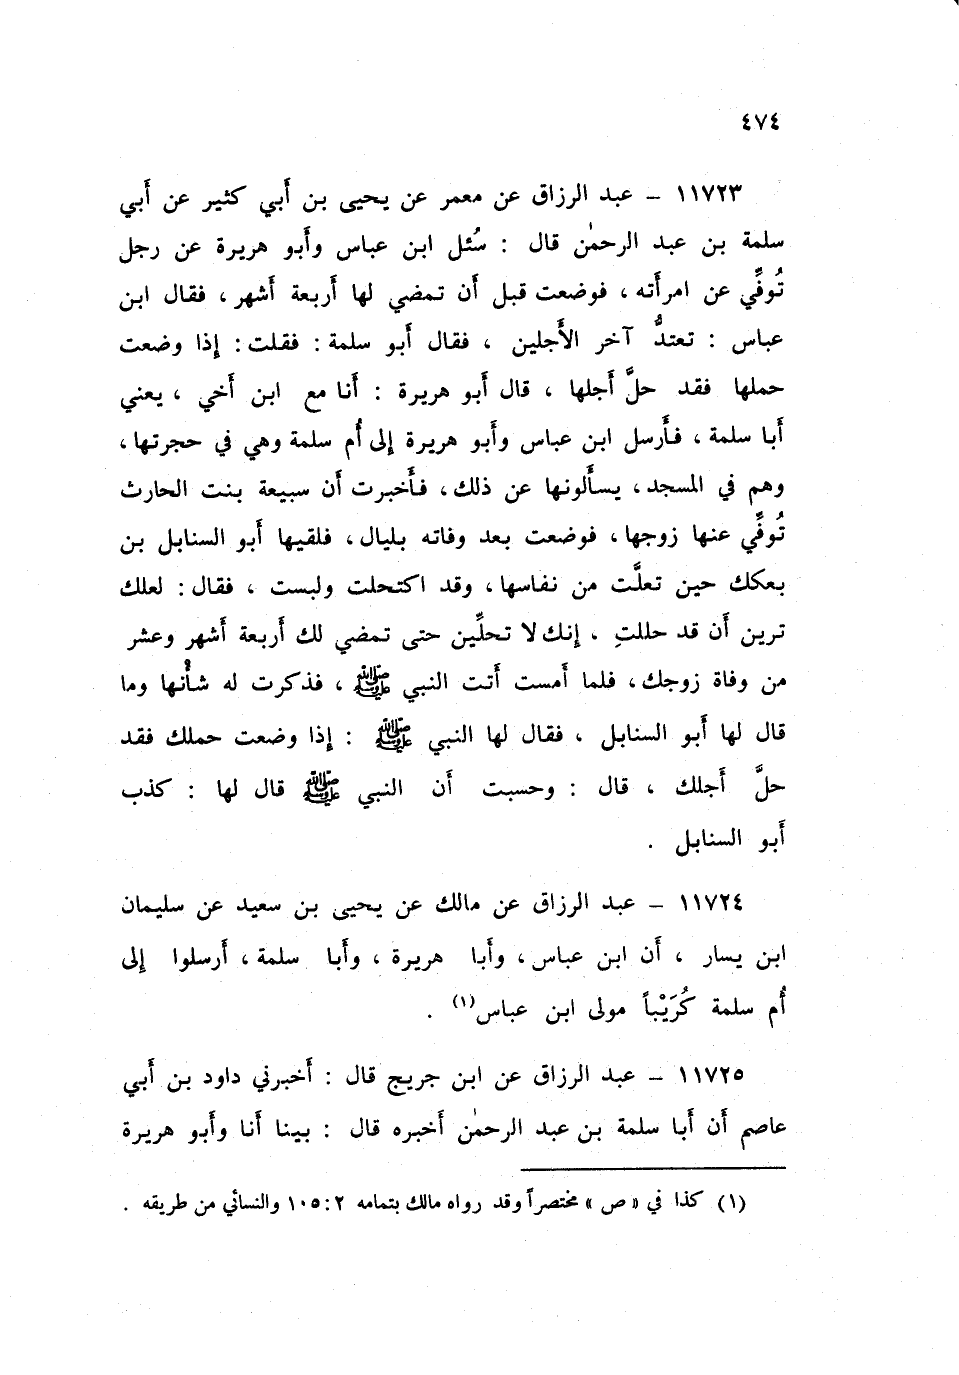 ٤٧٤
١١٧٢٣ – عبد الرزاق عن معمر عن يحيى بن أَبي كثير عن أَبي
سلمة بن عبد الرحمٰن قال : سُئل ابن عباس وأَبو هريرة عن رجل
تُوفِّي عن امرأَته ، فوضعت قبل أَن تمضي لها أَربعة أَشهر ، فقال ابن
عباس : تعتدُّ آخر الأَجلين ، فقال أَبو سلمة : فقلت : إذا وضعت
حملها فقد حلَّ أَجلها ، قال أَبو هريرة : أَنا مع ابن أَخي ، يعني
أَبا سلمة ، فأَرسل ابن عباس وأَبو هريرة إلى أُم سلمة وهي في حجرتها ،
وهم في المسجد ، يسأَلونها عن ذلك ، فأَخبرت أَن سبيعة بنت الحارث
تُوفِّي عنها زوجها ، فوضعت بعد وفاته بليال ، فلقيها أَبو السنابل بن
بعكك حين تعلَّت من نفاسها ، وقد اكتحلت ولبست ، فقال : لعلك
ترين أَن قد حللتِ ، إنك لا تحلِّين حتى تمضي لك أَربعة أَشهر وعشر
من وفاة زوجك ، فلما أَمست أَتت النبي ﷺ ، فذكرت له شأْنها وما
قال لها أَبو السنابل ، فقال لها النبي ﷺ : إذا وضعت حملك فقد
حلَّ أَجلك ، قال : وحسبت أَن النبي ﷺ قال لها : كذب
أَبو السنابل .
١١٧٢٤ – عبد الرزاق عن مالك عن يحيى بن سعيد عن سليمان
ابن يسار ، أَن ابن عباس ، وأَبا هريرة ، وأَبا سلمة ، أَرسلوا إلى
أُم سلمة كُرَيْباً مولى ابن عباس(١) .
١١٧٢٥ – عبد الرزاق عن ابن جريج قال : أَخبرني داود بن أَبي
عاصم أَن أَبا سلمة بن عبد الرحمٰن أَخبره قال : بينا أَنا وأَبو هريرة
(١) كذا في « ص » مختصراً وقد رواه مالك بتمامه ٢ : ١٠٥ والنسائي من طريقه .